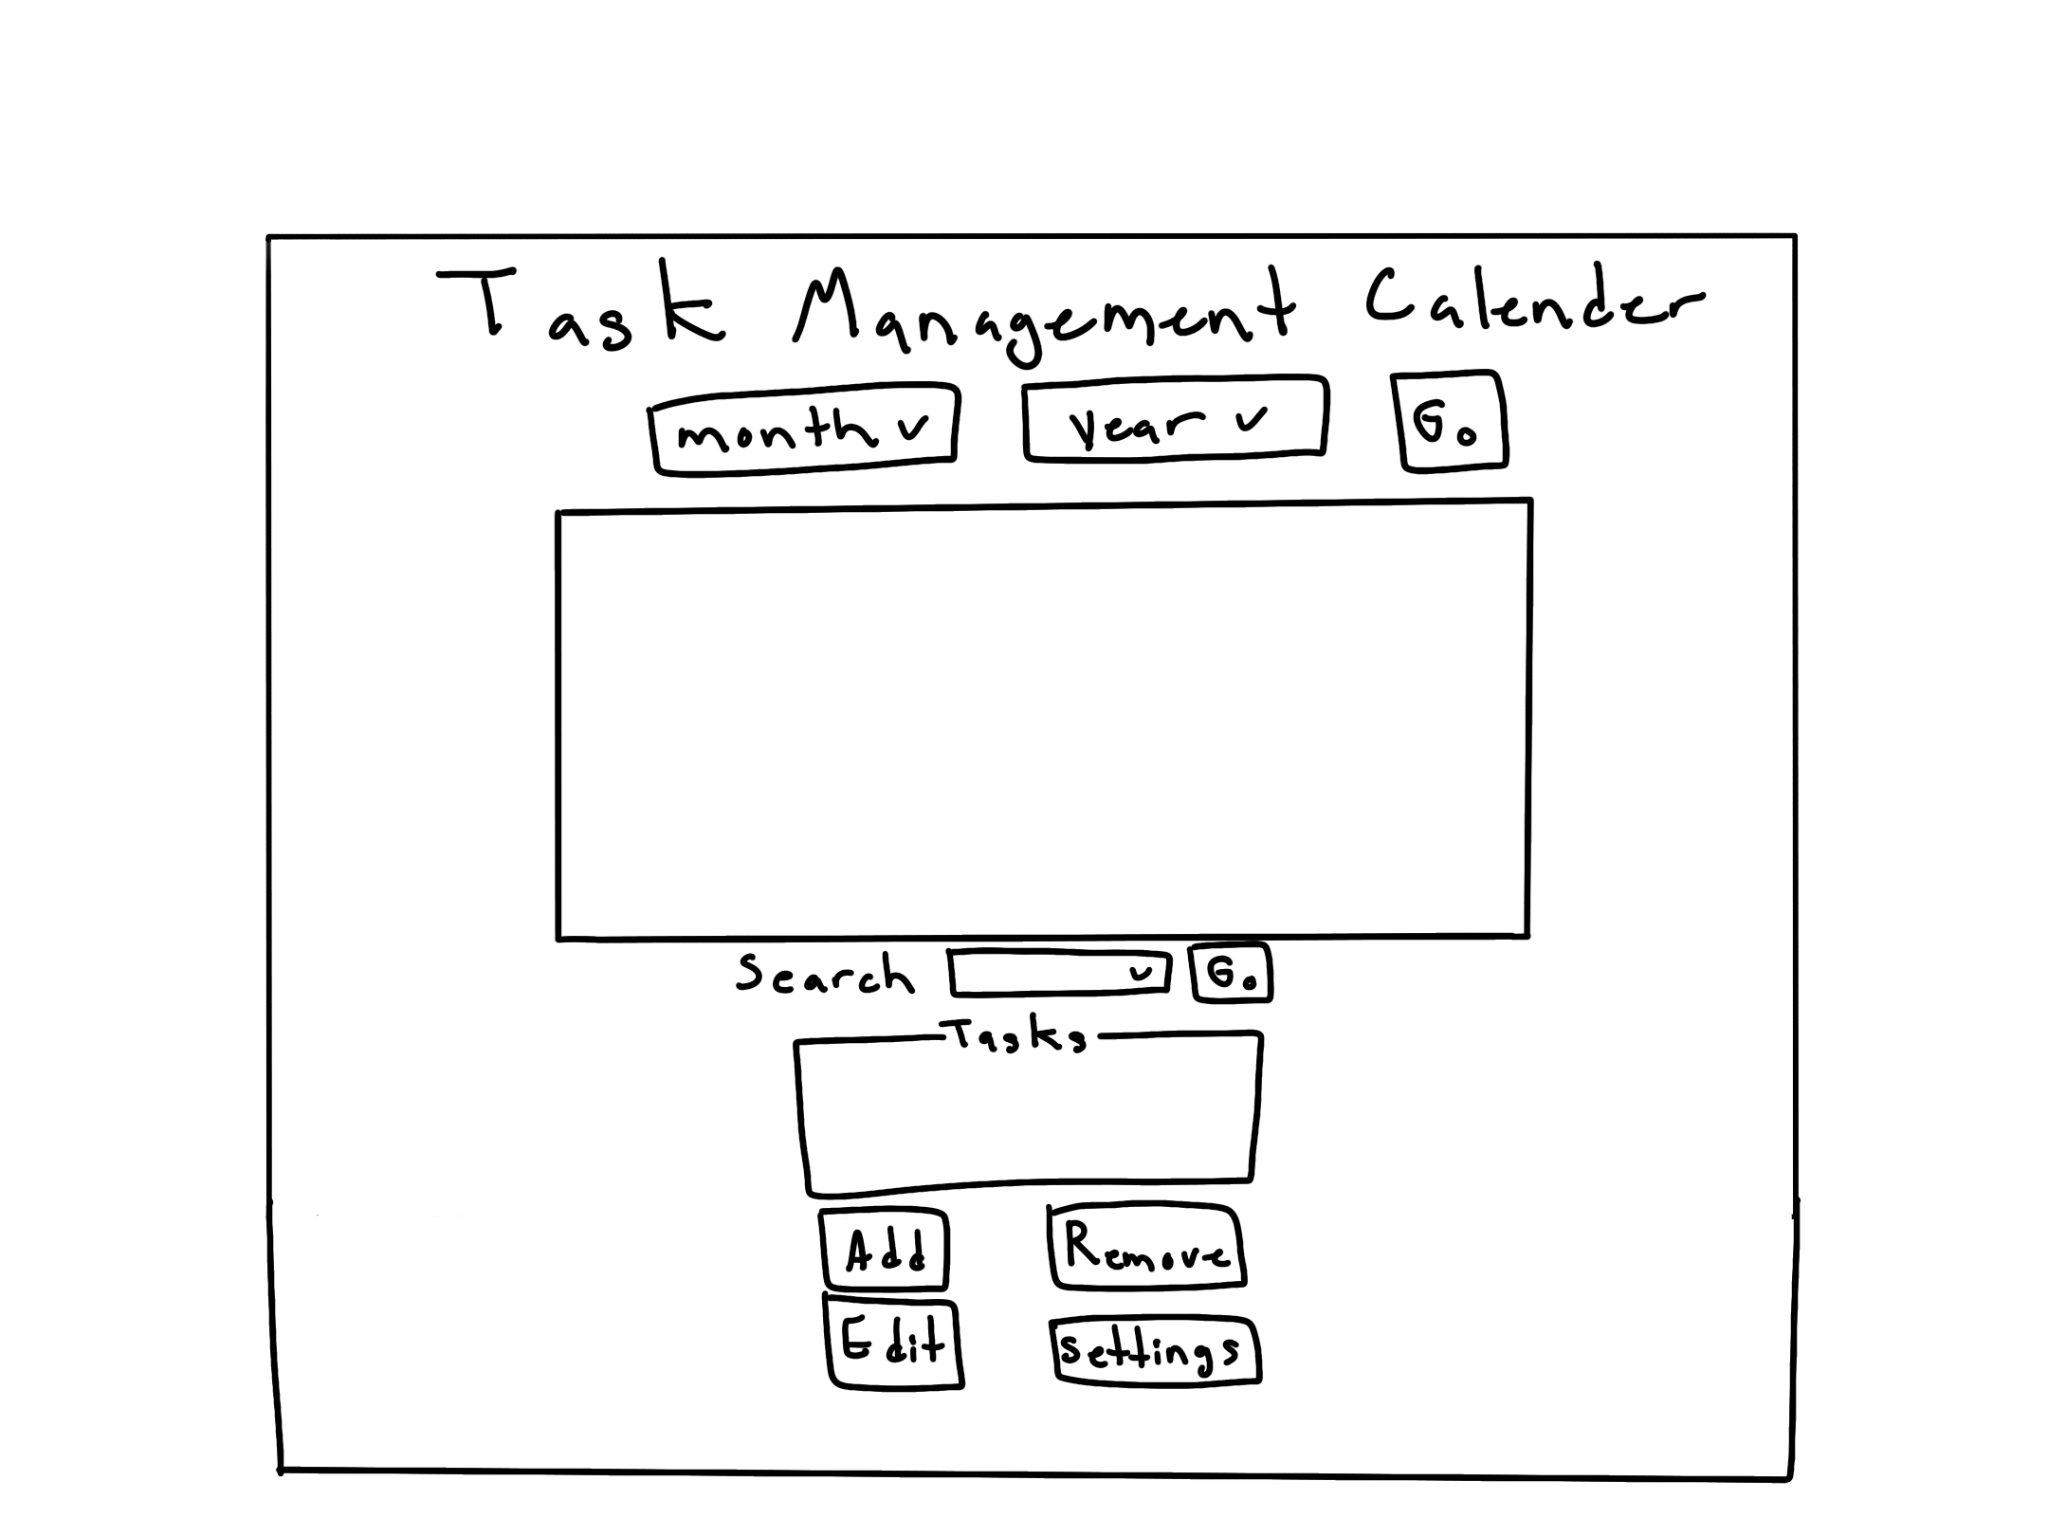 Task Management Calender
month year Go
Search Go
Tasks
Add Remove
Edit Settings